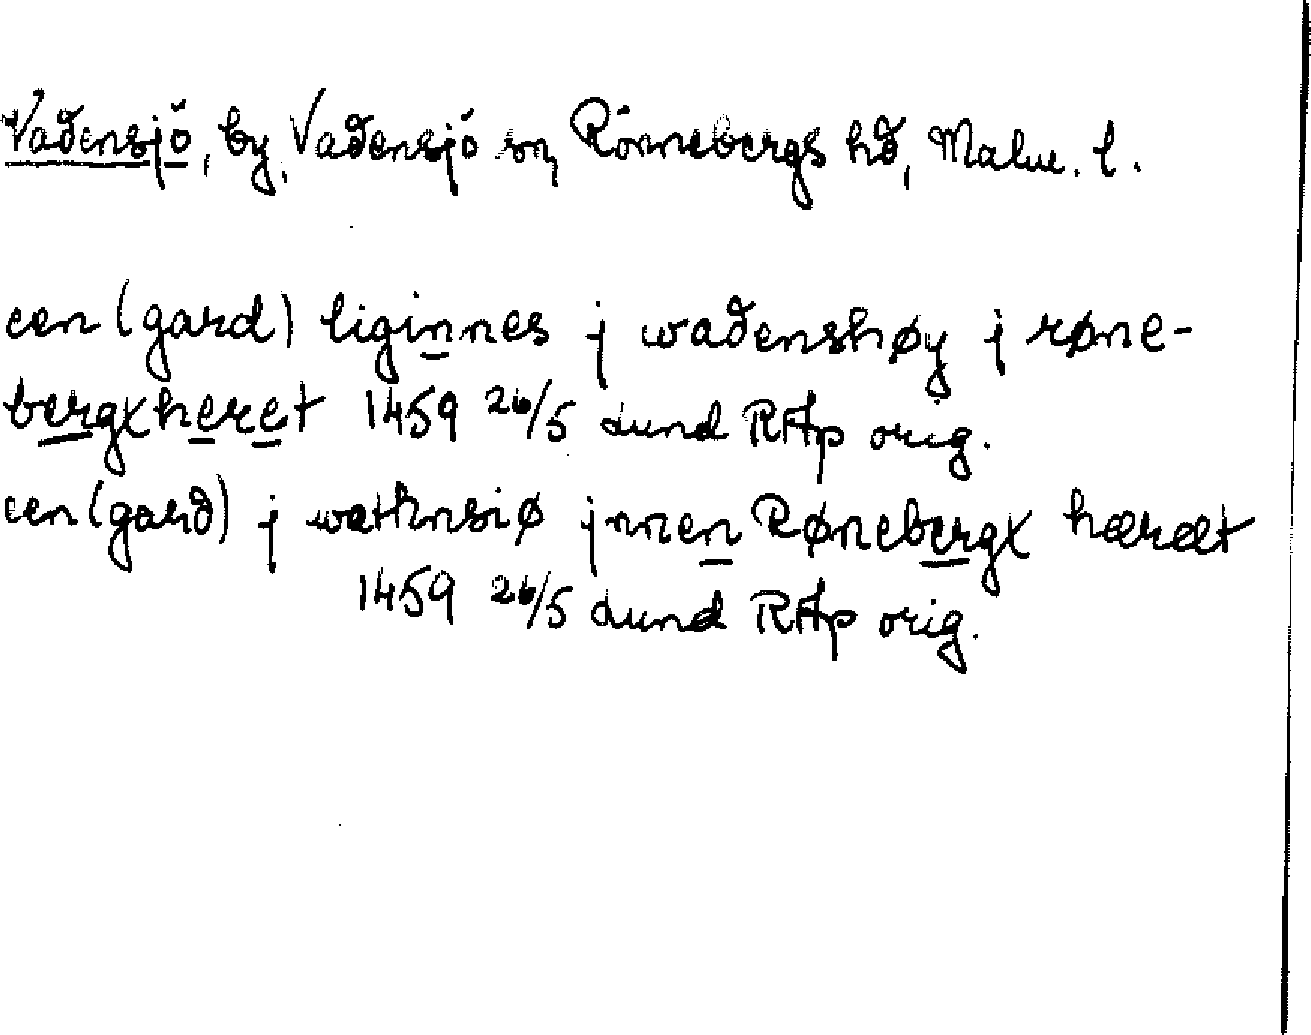 Vadensjö, by, Vadensjö sn, Rönnebergs hd, Malm. l.
een (gard) liginnes j wadenshøy j røne-
bergxheret 1459 26/5 Lund RAp orig.
een (gard) j wathnsiø jnnen Rønebergx hæræt
1459 26/5 Lund RAp orig.